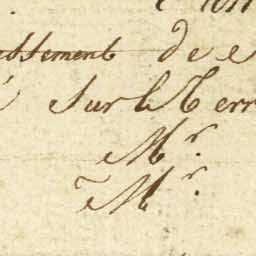 ssement de
sur le Terr
Mr.
Mr.